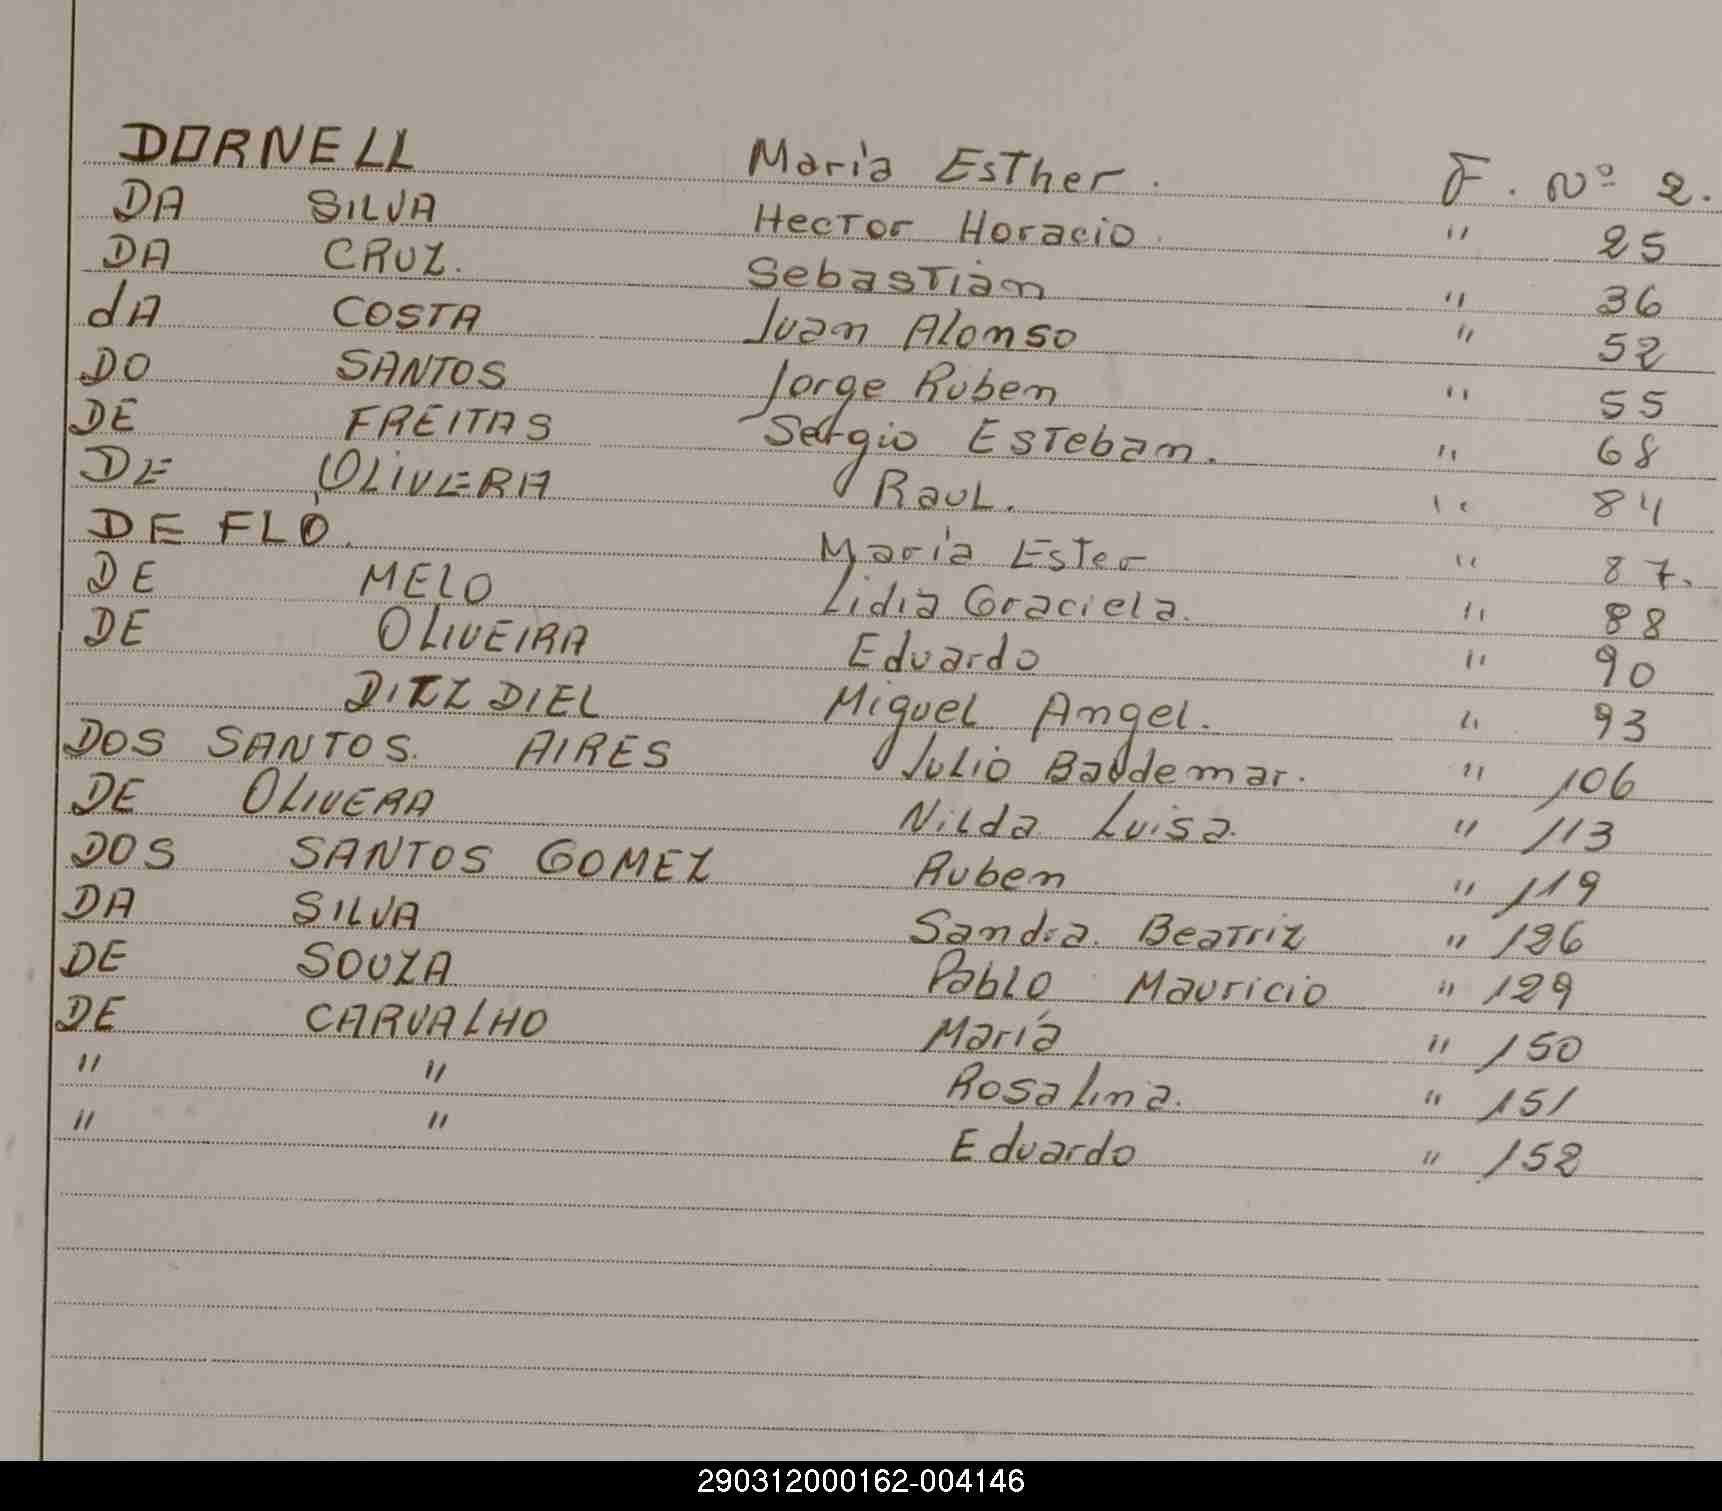 DORNELL Maria EsTher. F. Nº 2.
DA SILVA HecTor Horacio. " 25
DA CRUZ. SebasTián " 36
dA COSTA Juan Alonso " 52
DO SANTOS Jorge Ruben " 55
DE FREITAS Sergio ESTeban. " 68
DE OLIVERA RauL. " 84
DE FLÓ. María EsTer " 87.
DE MELO Lidia Graciela. " 88
DE OLIVEIRA Eduardo " 90
DIEZ DIEL Miguel Angel. " 93
DOS SANTOS. AIRES Julio Baudemar. " 106
DE OLIVERA Nilda Luisa. " 113
DOS SANTOS GOMEZ Ruben " 119
DA SILVA Sandra. BeaTriz " 126
DE SOUZA Pablo Mauricio " 129
DE CARVALHO María " 150
" " Rosalina. " 151
" " Eduardo " 152
290312000162-004146